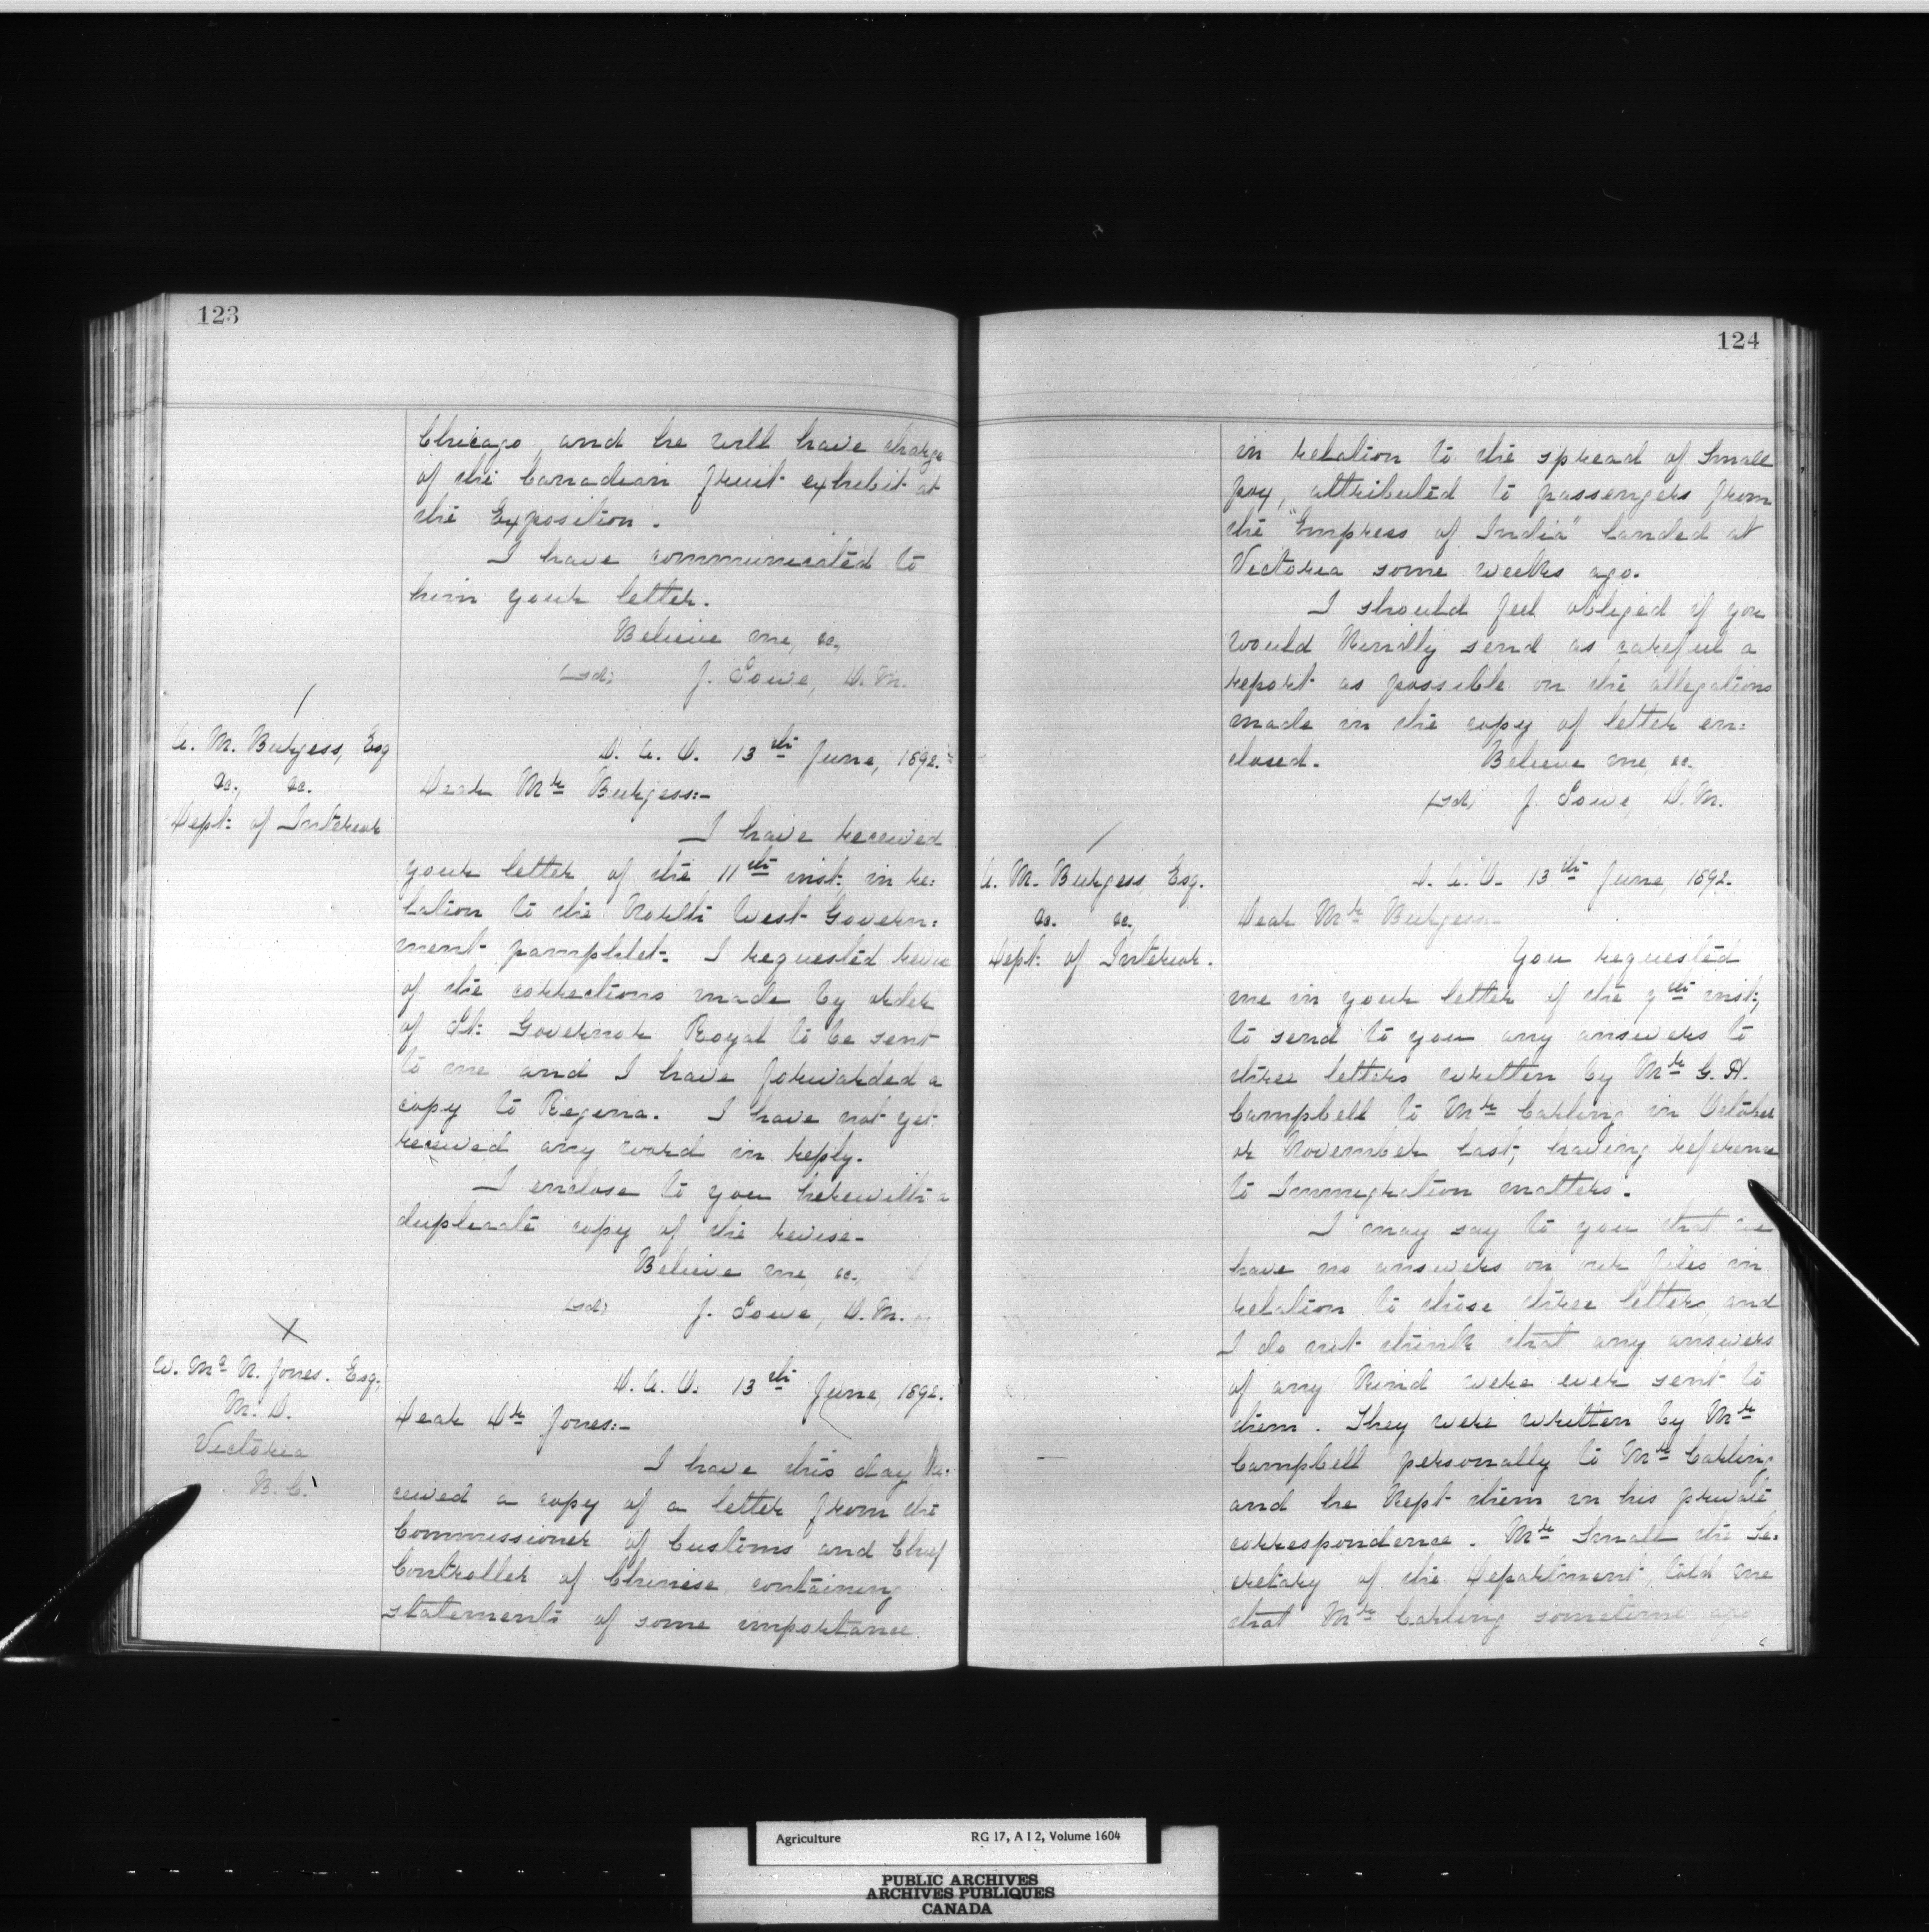 123
Chicago, and he will have charge
of the Canadian fruit exhibit at
the Exposition.
I have communicated to
him your letter.
Believe me, &c.,
(sd) J. Lowe, D. M.
A. M. Burgess, Esq
&c., &c.
Dept: of Interior
D. A. O. 13th June, 1892.
Dear Mr Burgess:-
I have received
your letter of the 11th inst: in re:
lation to the North West Govern:
ment pamphlet. I requested revise
of the corrections made by order
of Lt: Governor Royal to be sent
to me and I have forwarded a
copy to Regina. I have not yet
received any word in reply.
I enclose to you herewith a
duplicate copy of the revise.
Believe me, &c.,
(sd) J. Lowe, D. M.
W. Mc N. Jones. Esq.,
M. D.
Victoria
B. C.
D. A. O. 13th June, 1892.
Dear Dr Jones:-
I have this day re:
ceived a copy of a letter from the
Commissioner of Customs and Chief
Controller of Chinese, containing
statements of some importance
124
in relation to the spread of Small
pox, attributed to passengers from
the "Empress of India" landed at
Victoria some weeks ago.
I should feel obliged if you
would kindly send as careful a
report as possible on the allegations
made in the copy of letter en:
closed. Believe me, &c.
(sd) J. Lowe, D. M.
A. M. Burgess, Esq.
&c. &c.,
Dept: of Interior.
D. A. O. 13th June, 1892.
Dear Mr Burgess:-
You requested
me in your letter of the 7th inst:,
to send to you any answers to
three letters written by Mr G. H.
Campbell to Mr Carling in October
or November last, having reference
to Immigration matters.
I may say to you that we
have no answers on our files in
relation to these three letters, and
I do not think that any answers
of any kind were ever sent to
them. They were written by Mr
Campbell personally to Mr Carling
and he kept them in his private
correspondence. Mr Small the Se:
cretary of the Department, told me
that Mr Carling sometime ago
Agriculture RG 17, A I 2, Volume 1604
PUBLIC ARCHIVES
ARCHIVES PUBLIQUES
CANADA